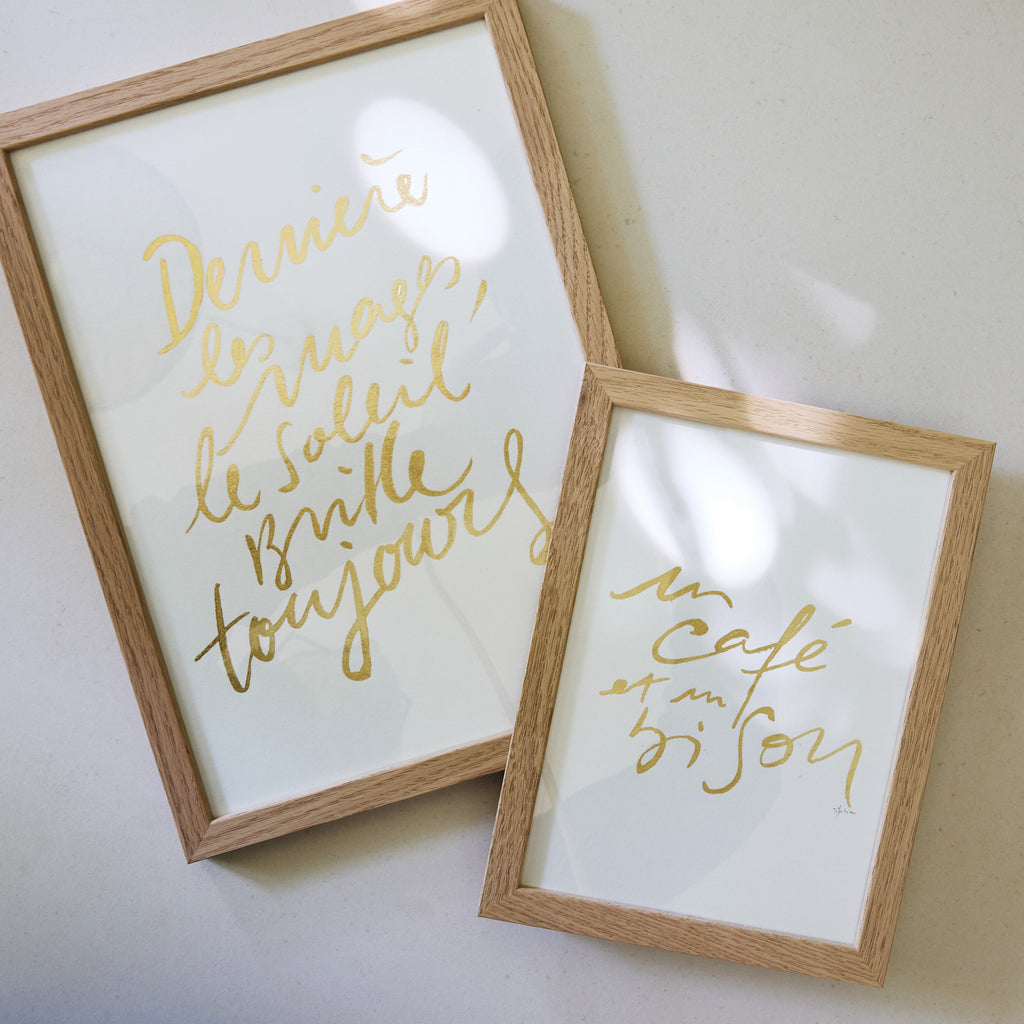 Derrière
les nuages,
le soleil
Brille
toujours
un
café
et un
bisou